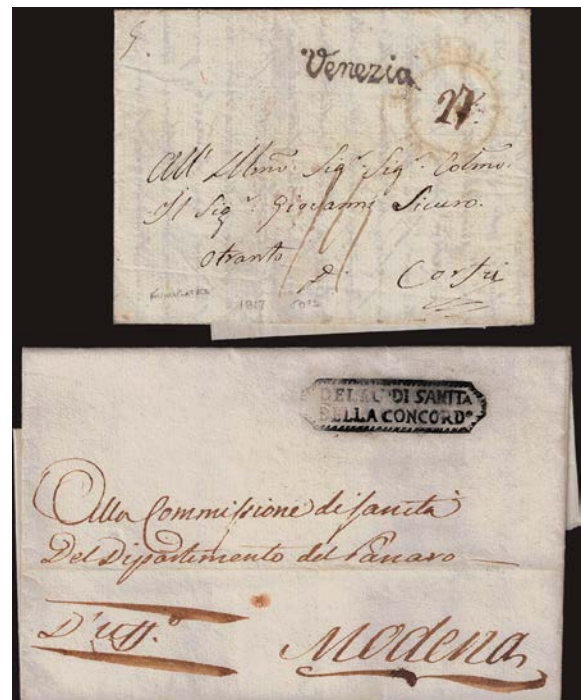 Venezia
27
All' Illmo. Sigr. Sigr. Colmo.
Il Sigr. Giovanni Sicuro.
Otranto
p. Corfù
1817
DELEG. DI SANITA
DELLA CONCORDª
Alla Commissione di sanità
Del Dipartimento del Panaro
D'uff.º
Modena